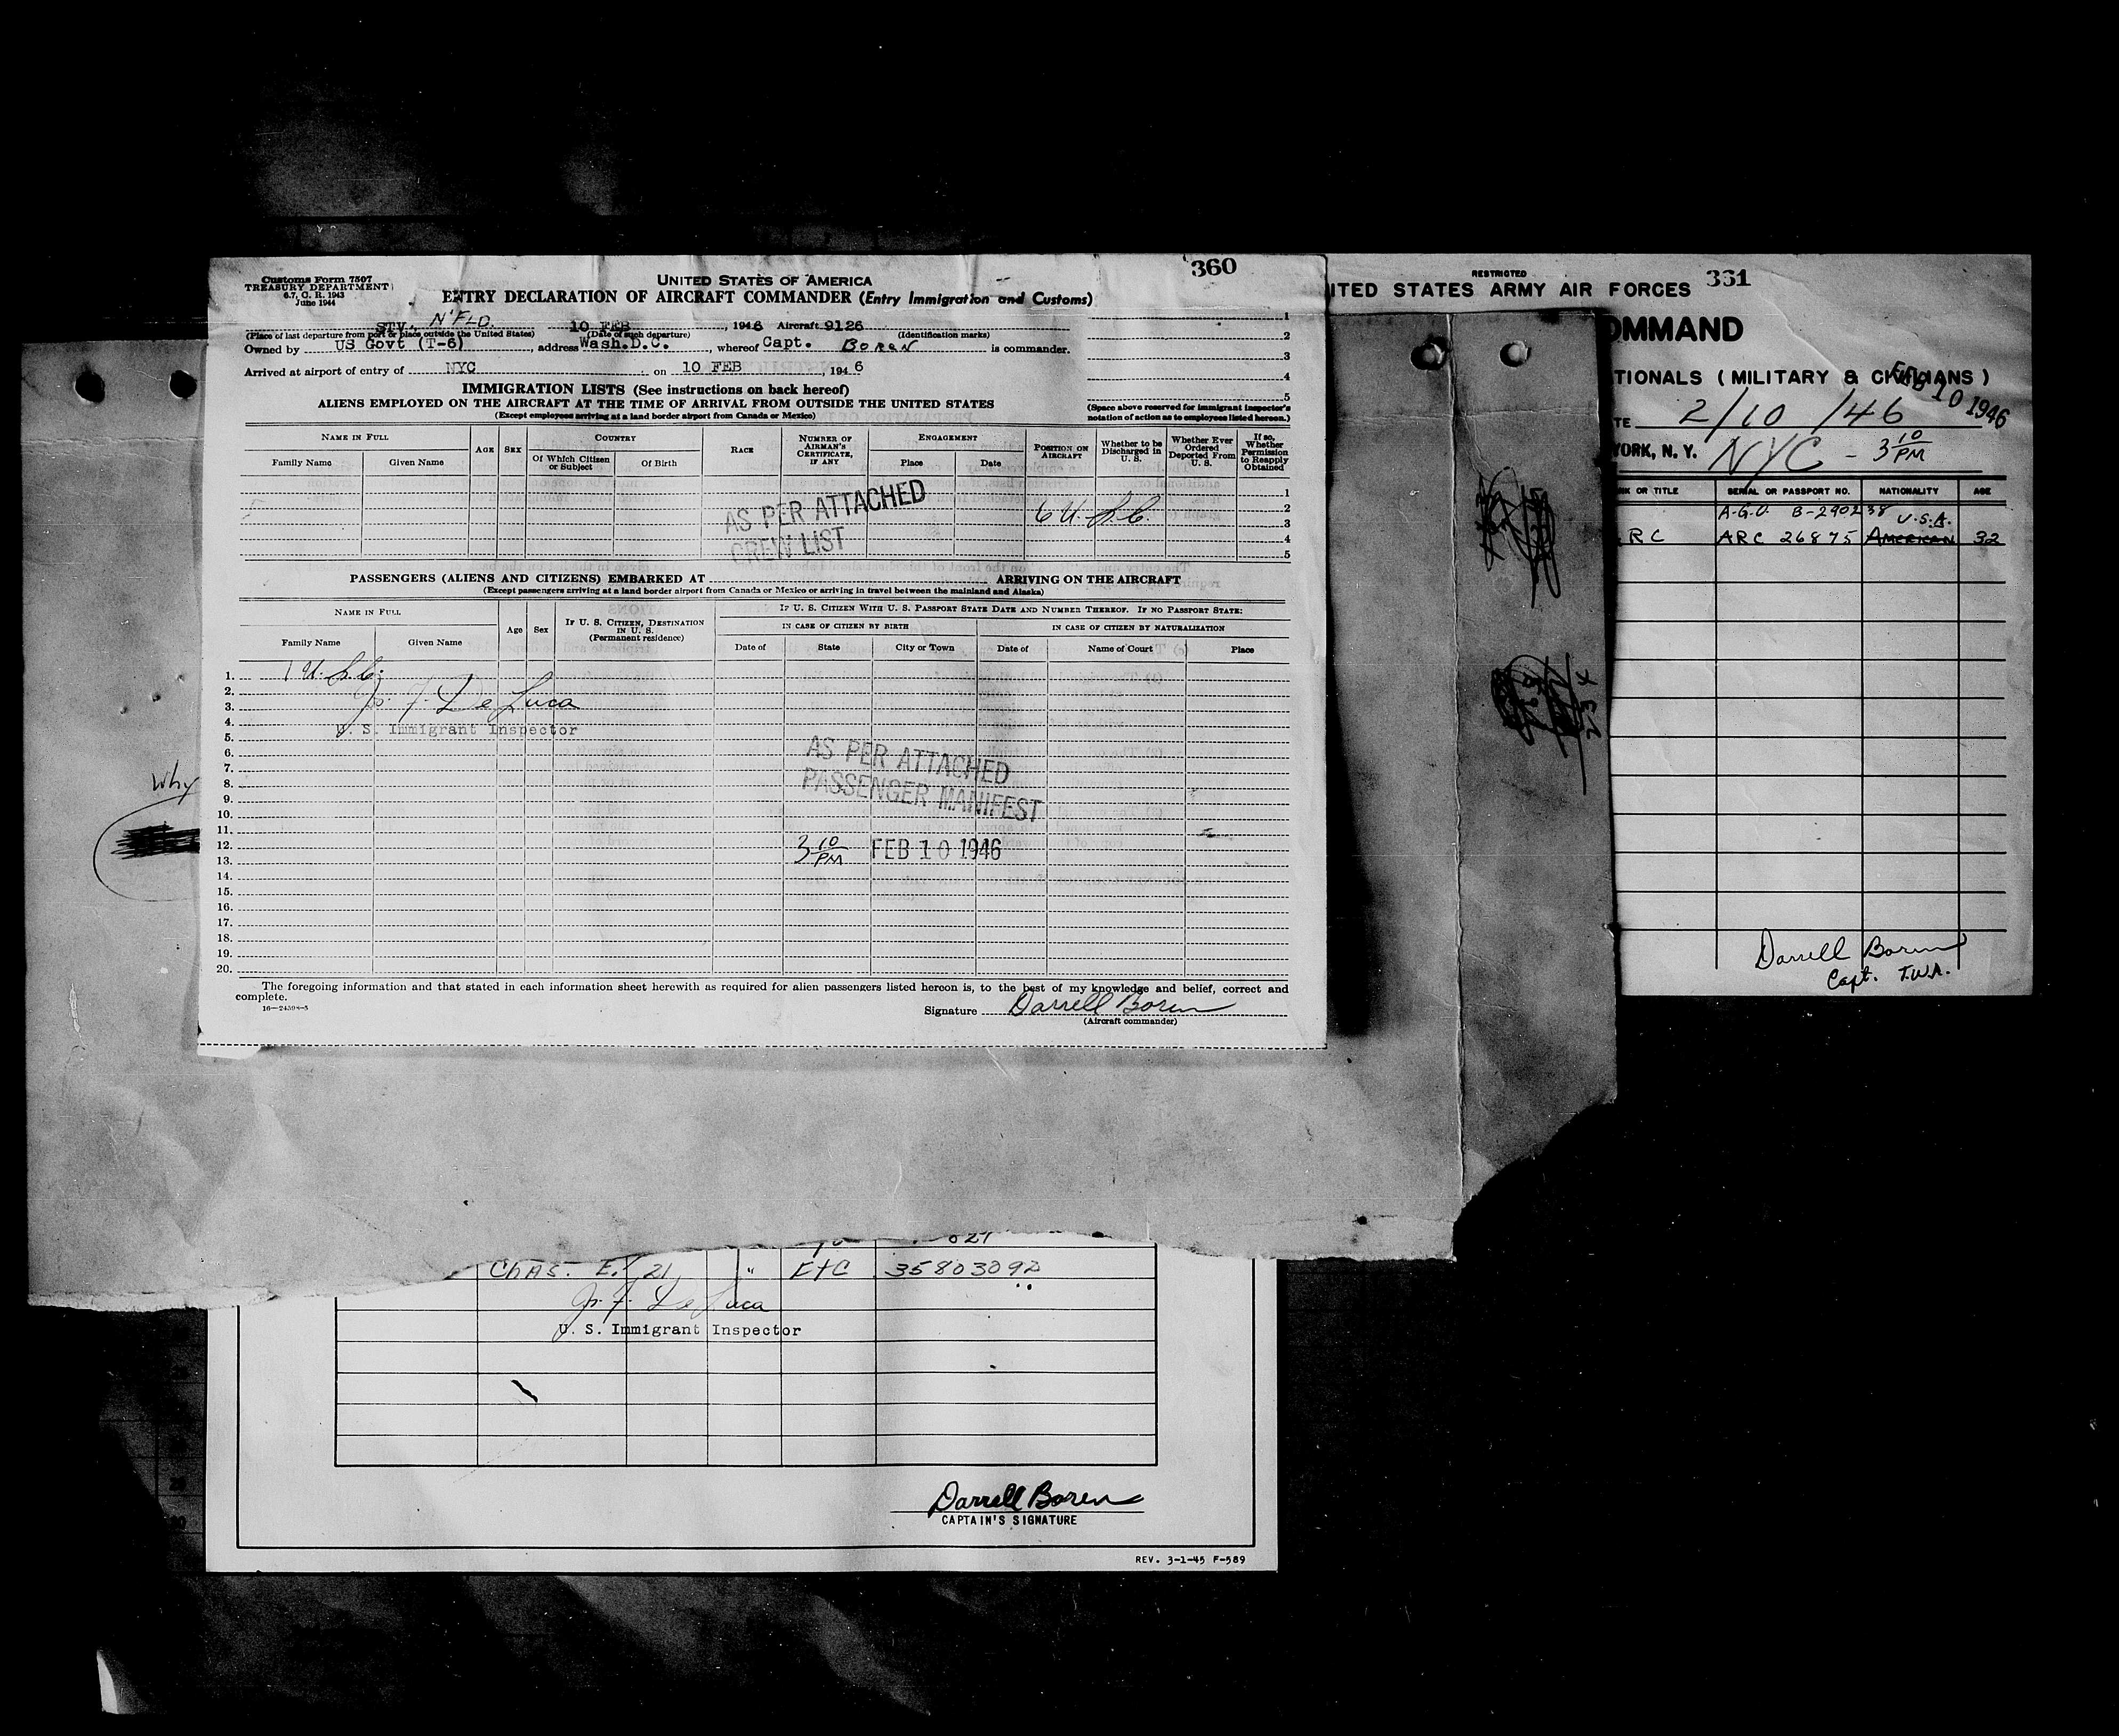 Customs Form 7507
TREASURY DEPARTMENT
6.7, C. R. 1943
June 1944
360
UNITED STATES OF AMERICA
ENTRY DECLARATION OF AIRCRAFT COMMANDER (Entry Immigration and Customs)
STV., N'FLD. 10 FEB, 1946 Aircraft 9126
(Place of last departure from port or place outside the United States) (Date of such departure) (Identification marks)
Owned by US Govt (T-6), address Wash.D.C., whereof Capt. BOREN is commander.
Arrived at airport of entry of NYC on 10 FEB, 1946
1
2
3
4
5
(Space above reserved for immigrant inspector's notation of action as to employees listed hereon.)
IMMIGRATION LISTS (See instructions on back hereof)
ALIENS EMPLOYED ON THE AIRCRAFT AT THE TIME OF ARRIVAL FROM OUTSIDE THE UNITED STATES
(Except employees arriving at a land border airport from Canada or Mexico)
NAME IN FULL
Family Name Given Name
AGE SEX
COUNTRY
Of Which Citizen or Subject Of Birth
RACE
NUMBER OF AIRMAN'S CERTIFICATE, IF ANY
ENGAGEMENT
Place Date
POSITION ON AIRCRAFT
Whether to be Discharged in U. S.
Whether Ever Ordered Deported From U. S.
If so, Whether Permission to Reapply Obtained
1
2
3
4
5
AS PER ATTACHED
CREW LIST
6 U.S.C.
PASSENGERS (ALIENS AND CITIZENS) EMBARKED AT ARRIVING ON THE AIRCRAFT
(Except passengers arriving at a land border airport from Canada or Mexico or arriving in travel between the mainland and Alaska)
NAME IN FULL
Family Name Given Name
Age Sex
IF U. S. CITIZEN, DESTINATION IN U. S. (Permanent residence)
IF U. S. CITIZEN WITH U. S. PASSPORT STATE DATE AND NUMBER THEREOF. IF NO PASSPORT STATE:
IN CASE OF CITIZEN BY BIRTH IN CASE OF CITIZEN BY NATURALIZATION
Date of State City or Town Date of Name of Court Place
1. 1 U.S.C.
2.
3. F. De Luca
4.
5. U. S. Immigrant Inspector
6.
7.
8.
9.
10.
11.
12.
13.
14.
15.
16.
17.
18.
19.
20.
AS PER ATTACHED
PASSENGER MANIFEST
3 10 PM FEB 10 1946
The foregoing information and that stated in each information sheet herewith as required for alien passengers listed hereon is, to the best of my knowledge and belief, correct and complete.
16—24598-3
Signature Darrell Boren
(Aircraft commander)
Why
234
RESTRICTED
ITED STATES ARMY AIR FORCES 361
OMMAND
TIONALS (MILITARY & CIVILIANS)
FEB 10 1946
TE 2/10/46
YORK, N. Y. NYC - 3 10 PM
NK OR TITLE SERIAL OR PASSPORT NO. NATIONALITY AGE
A.G.O. B-290238 U.S.A.
RC ARC 26875 American 32
Darrell Boren
Capt. T.W.A.
Chas. E. 21 " E+C 35803092
F. De Luca
U. S. Immigrant Inspector
Darrell Boren
CAPTAIN'S SIGNATURE
REV. 3-1-45 F-589